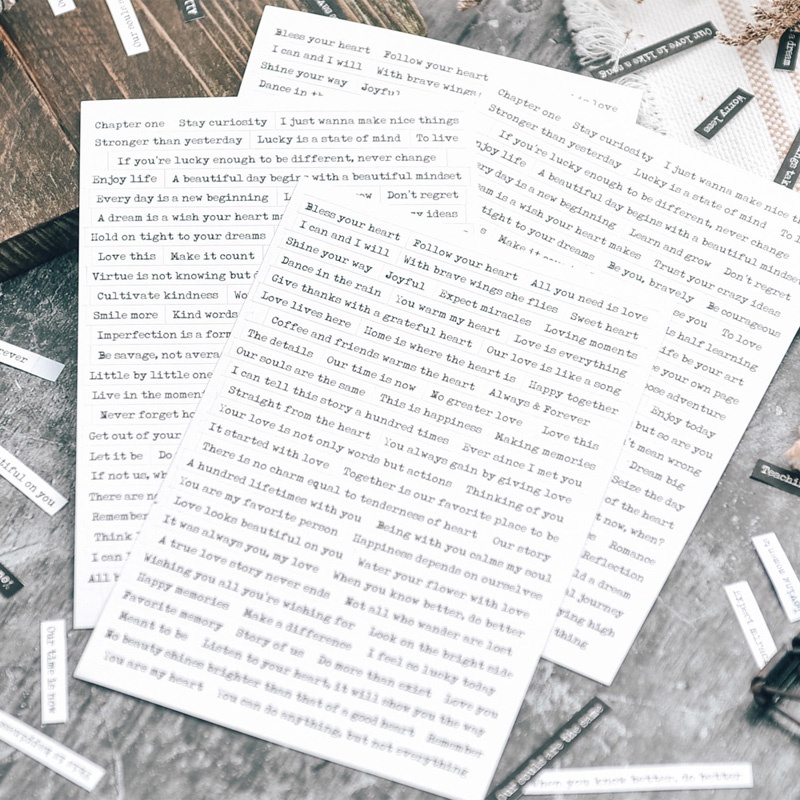 Bless your heart Follow your heart
I can and I will With brave wings
Shine your way Joyful
Dance in
love
Chapter one Stay curiosity I just wanna make nice things
Stronger than yesterday Lucky is a state of mind To live
If you're lucky enough to be different, never change
Enjoy life A beautiful day begins with a beautiful mindset
Every day is a new beginning Don't regret
A dream is a wish your heart
ideas
Hold on tight to your dreams
Love this Make it count
Virtue is not knowing but
Cultivate kindness
Smile more Kind words
Imperfection is a form
Be savage, not
Little by little one
Live in the moment
Never forget
Get out of your
Let it be
If not us,
There are
Remember
Think
I can
All
Chapter one Stay curiosity I just wanna make nice
Stronger than yesterday Lucky is a state of mind To
If you're lucky enough to be different, never change
Enjoy life A beautiful day begins with a beautiful mindset
day is a new beginning Learn and grow Don't regret
is a wish your heart makes Trust your crazy ideas
tight to your dreams Be you, bravely Be courageous
Make it
you To love
is half learning
life be your art
your own page
adventure
Enjoy today
but so are you
mean wrong
Dream big
Seize the day
of the heart
now, when?
Romance
Reflection
a dream
journey
high
thing
Bless your heart Follow your heart All you need is love
I can and I will With brave wings she flies Sweet heart
Shine your way Joyful Expect miracles Loving moments
Dance in the rain You warm my heart Love is everything
Give thanks with a grateful heart Our love is like a song
Love lives here Home is where the heart is Happy together
Coffee and friends warms the heart Always & Forever
The details Our time is now No greater love Love this
Our souls are the same This is happiness Making memories
I can tell this story a hundred times Ever since I met you
Straight from the heart You always gain by giving love
Your love is not only words but actions Thinking of you
It started with love Together is our favorite place to be
There is no charm equal to tenderness of heart Our story
A hundred lifetimes with you Being with you calms my soul
You are my favorite person Happiness depends on ourselves
Love looks beautiful on you Water your flower with love
It was always you, my love When you know better, do better
A true love story never ends Not all who wander are lost
Wishing you all you're wishing for Look on the bright side
Happy memories Make a difference I feel so lucky today
Favorite memory Story of us Do more than exist Love you
Meant to be Listen to your heart, it will show you the way
No beauty shines brighter than that of a good heart Remember
You are my heart You can do anything, but not everything
Our love is like a song
Worry less
a dream
Teachi
Our time is now
Our souls are the same
When you know better, do better